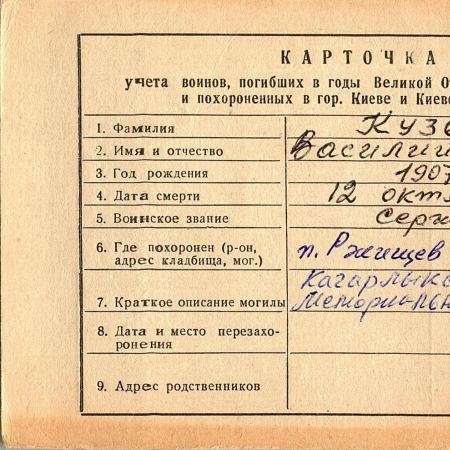 КАРТОЧКА
учета воинов, погибших в годы Великой О
и похороненных в гор. Киеве и Киев
1. Фамилия Кузе
2. Имя и отчество Василий
3. Год рождения 1907
4. Дата смерти 12 окт
5. Воинское звание Серж
6. Где похоронен (р-он, п. Ржищев
адрес кладбища, мог.) Кагарлык
7. Краткое описание могилы Мемориаль
8. Дата и место перезахо-
ронения
9. Адрес родственников